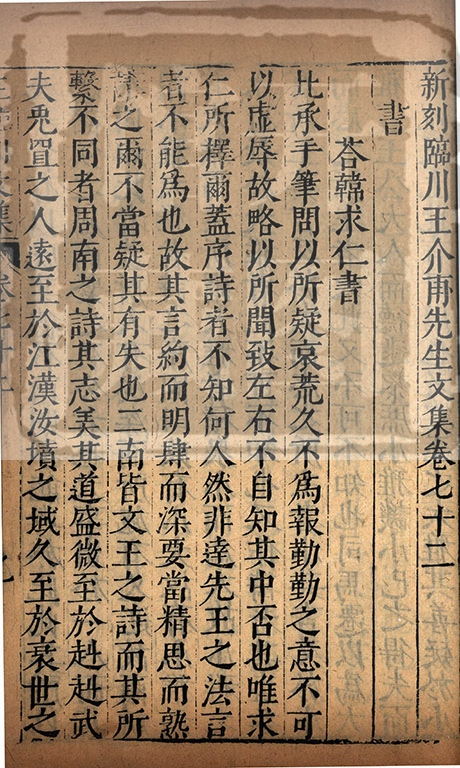 新刻臨川王介甫先生文集卷七十二
書
荅韓求仁書
比承手筆問以所疑哀荒久不為報勤勤之意不可
以虛辱故略以所聞致左右不自知其中否也唯求
仁所擇爾蓋序詩者不知何人然非達先王之法言
者不能為也故其言約而明肆而深要當精思而熟
講之爾不當疑其有失也二南皆文王之詩而其所
繫不同者周南之詩其志美其道盛微至於赳赳武
夫兎罝之人遠至於江漢汝墳之域久至於衰世之